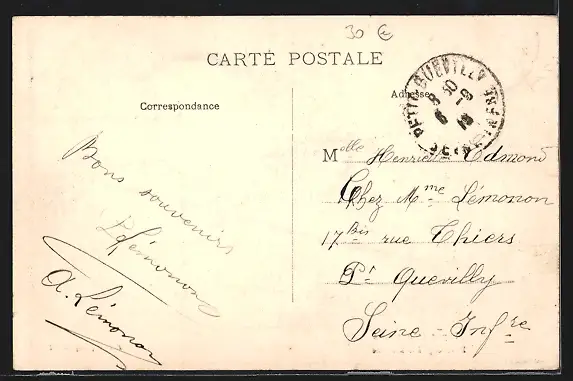 30 €
CARTE POSTALE
Correspondance
Adresse
PETIT-QUEVILLY SEINE-INFRE
8 30
6 -9
Bons souvenirs
Lémonon
A. Lémonon
Melle Henriette Edmond
Chez Mme Lémonon
17 Bis rue Thiers
Pt Quevilly
Seine-Infre